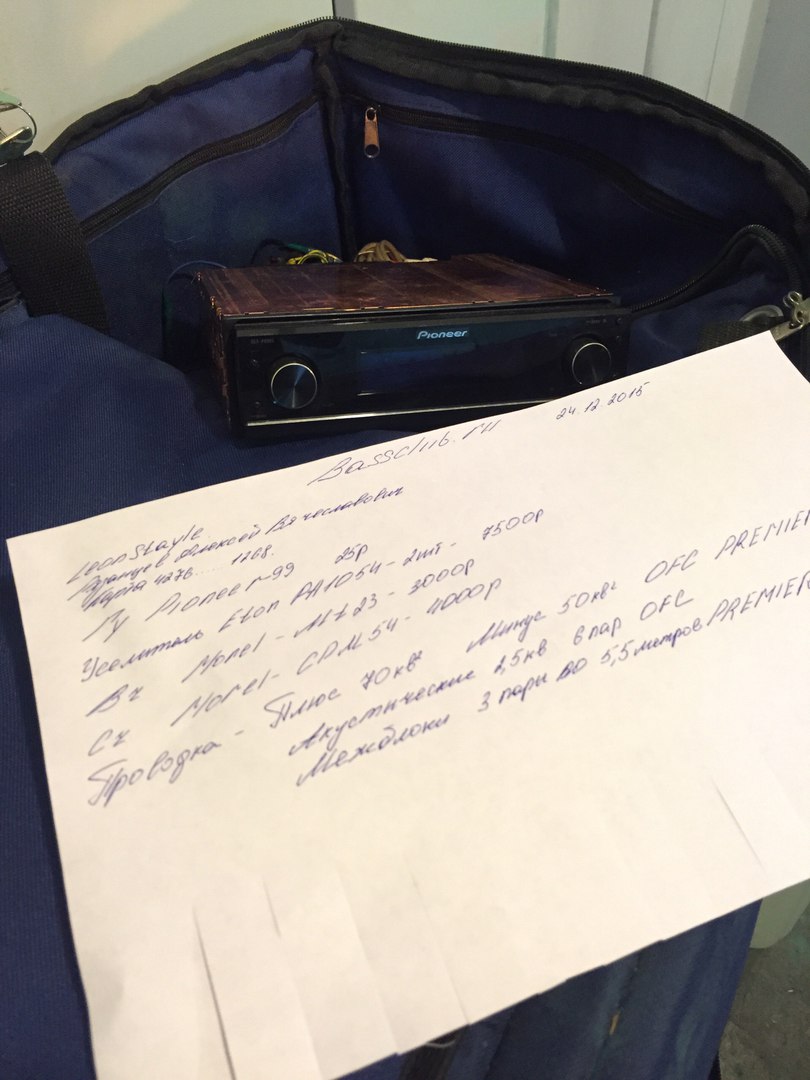 Pioneer
Bassclub.ru 24.12.2015
LeonStayle
Алексей Вячеславович
Карта 4276..... 1268.
ГУ Pioneer 99 25р
Уселитель Eton PA1054 - 2шт - 7500р
Вч Morel - Mt23 - 3000р
Сч Morel - CDM54 - 4000р
Проводка - Плюс 70кв² Минус 50кв² OFC PREMIER
Акустические 2,5кв 6 пар OFC
Межблоки 3 пары по 5,5 метров PREMIER